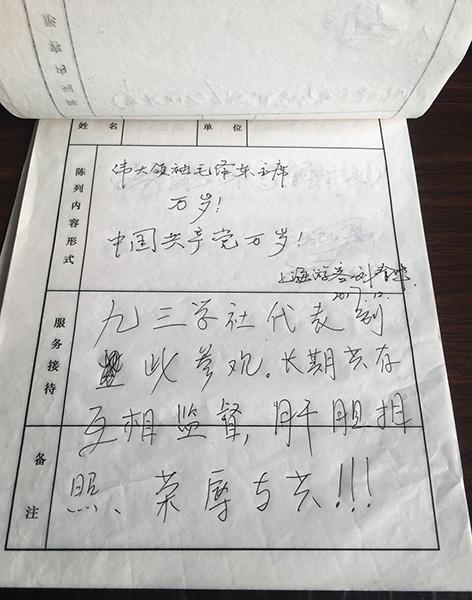 姓 名
单 位
陈列内容形式
伟大领袖毛泽东主席
万岁!
中国共产党万岁!
上海游客
2017.12.
服务接待
九三学社代表到
此参观。长期共存
互相监督,肝胆相
备注
照、荣辱与共!!!